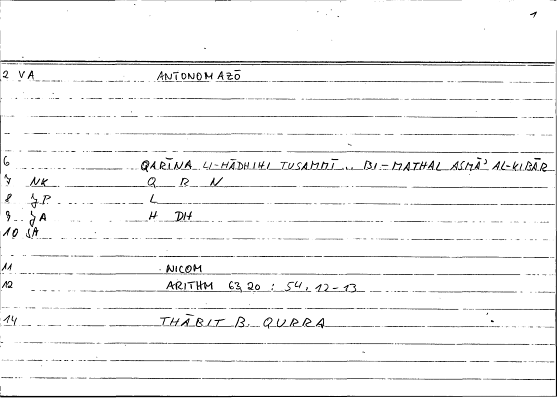 1
2 VA ANTONOMAZŌ
6 QARĪNA LI-HĀDHIHI TUSAMMĪ .. BI-MATHAL ASMĀʾ AL-KIBĀR
7 NK Q R N
8 JP L
9 JA H DH
10 SA
11 NICOM
12 ARITHM 63,20 : 54, 12-13
14 THĀBIT B. QURRA